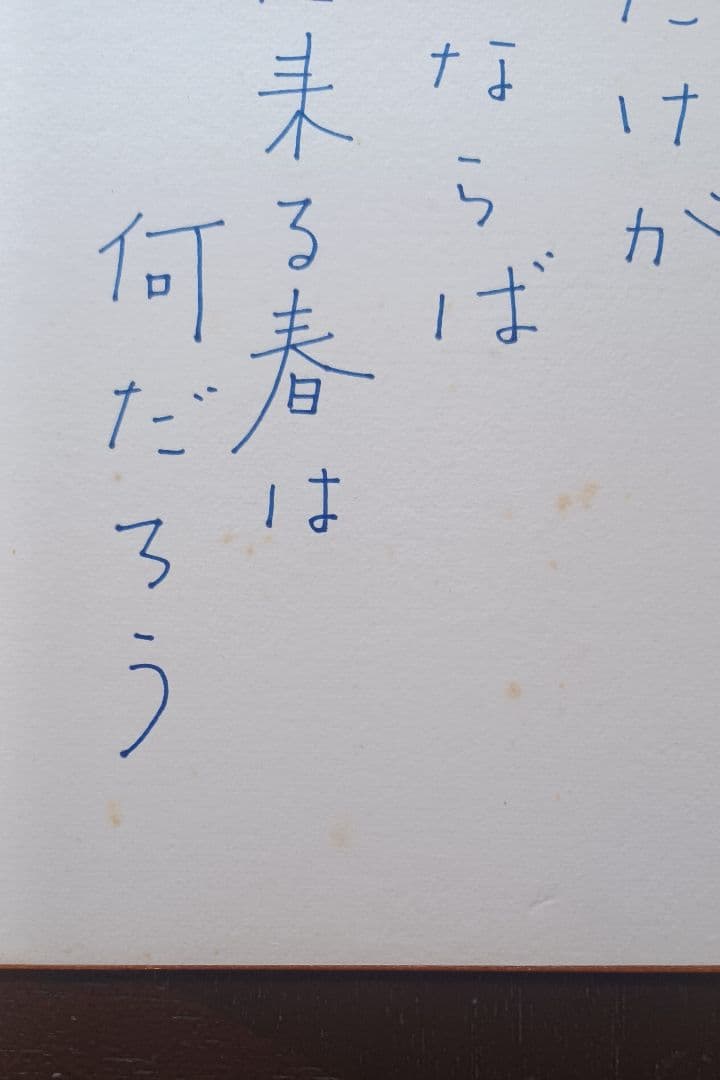 けが
ならば
来る春は
何だろう